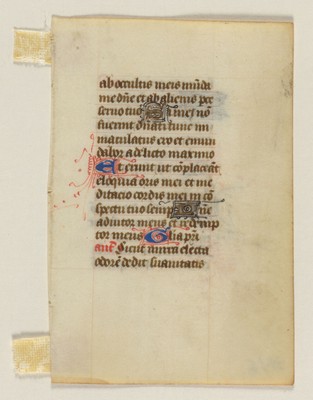 ab occultis meis mūda
me dñe et ab alienis par
ce seruo tuo Si mei nō
fuerint dñati tunc im
maculatus ero et emun
dabor a delicto maximo
Et erunt ut cōplaceāt
eloquia oris mei et me
ditacio cordis mei in cō
spectu tuo semp Dñe
adiutor meus et redemp
tor meus Glīa pr̄i
añ Sicut mirra electa
odorē dedit suauitatis